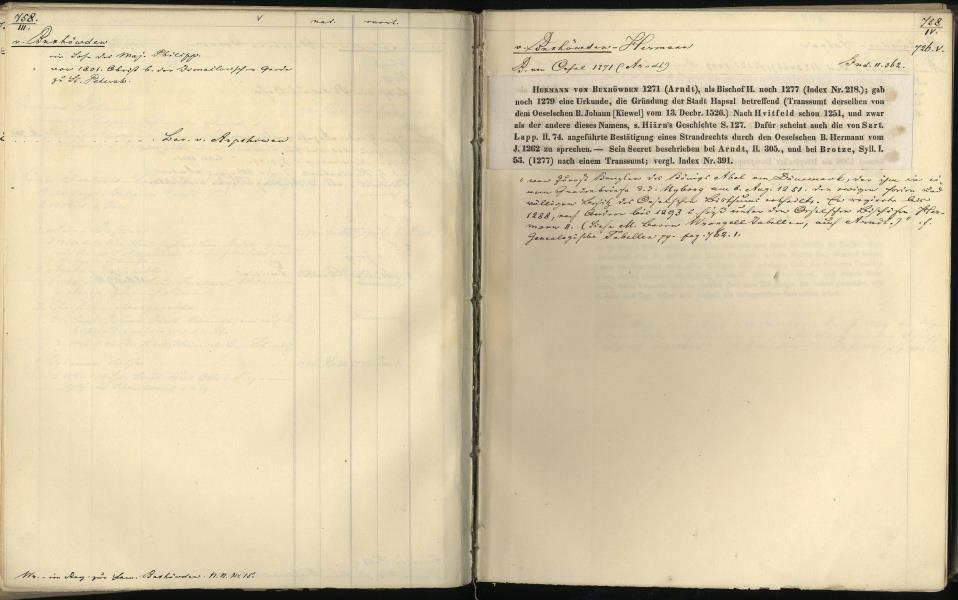 758.
III.
nat.
v. Buxhöwden
ein Sohn des Maj. Philipp.
war 1801. Obrist b. der Ismailowschen Garde
zu St. Petersb.
Bar. v.
758
IV.
v. Buxhöwden - Hermann
726.V.
B. von Oesel 1271 (Arndt)
Ind. II. 362.
HERMANN VON BUXHÖWDEN 1271 (Arndt), als Bischof H. noch 1277 (Index Nr. 218.); gab
noch 1279 eine Urkunde, die Gründung der Stadt Hapsal betreffend (Transsumt derselben von
dem Oeselschen B. Johann [Kiewel] vom 13. Decbr. 1526.) Nach Hvitfeld schon 1251, und zwar
als der andere dieses Namens, s. Hiärn's Geschichte S. 127. Dafür scheint auch die von Sart.
Lapp. II. 74. angeführte Bestätigung eines Strandrechts durch den Oeselschen B. Hermann vom
J. 1262 zu sprechen. — Sein Secret beschrieben bei Arndt, II. 305., und bei Brotze, Syll. I.
53. (1277) nach einem Transsumt; vergl. Index Nr. 391.
war zuerst Kanzler des Königs Abel von Dänemark, der ihm in ei-
nem Gnadenbriefe d.d. Nyborg am 8. Aug. 1251. den ewigen freien und
völligen Besitz des Oeselschen Bisthums ertheilte. Er regierte bis
1288, nach Andern bis 1293 u. hieß unter den Oeselschen Bischöfen Her-
mann II. (Siehe M. Baron Wrangell Tabellen, auch Arndt.) cf.
Genealogische Tabellen pag. 762. 1.